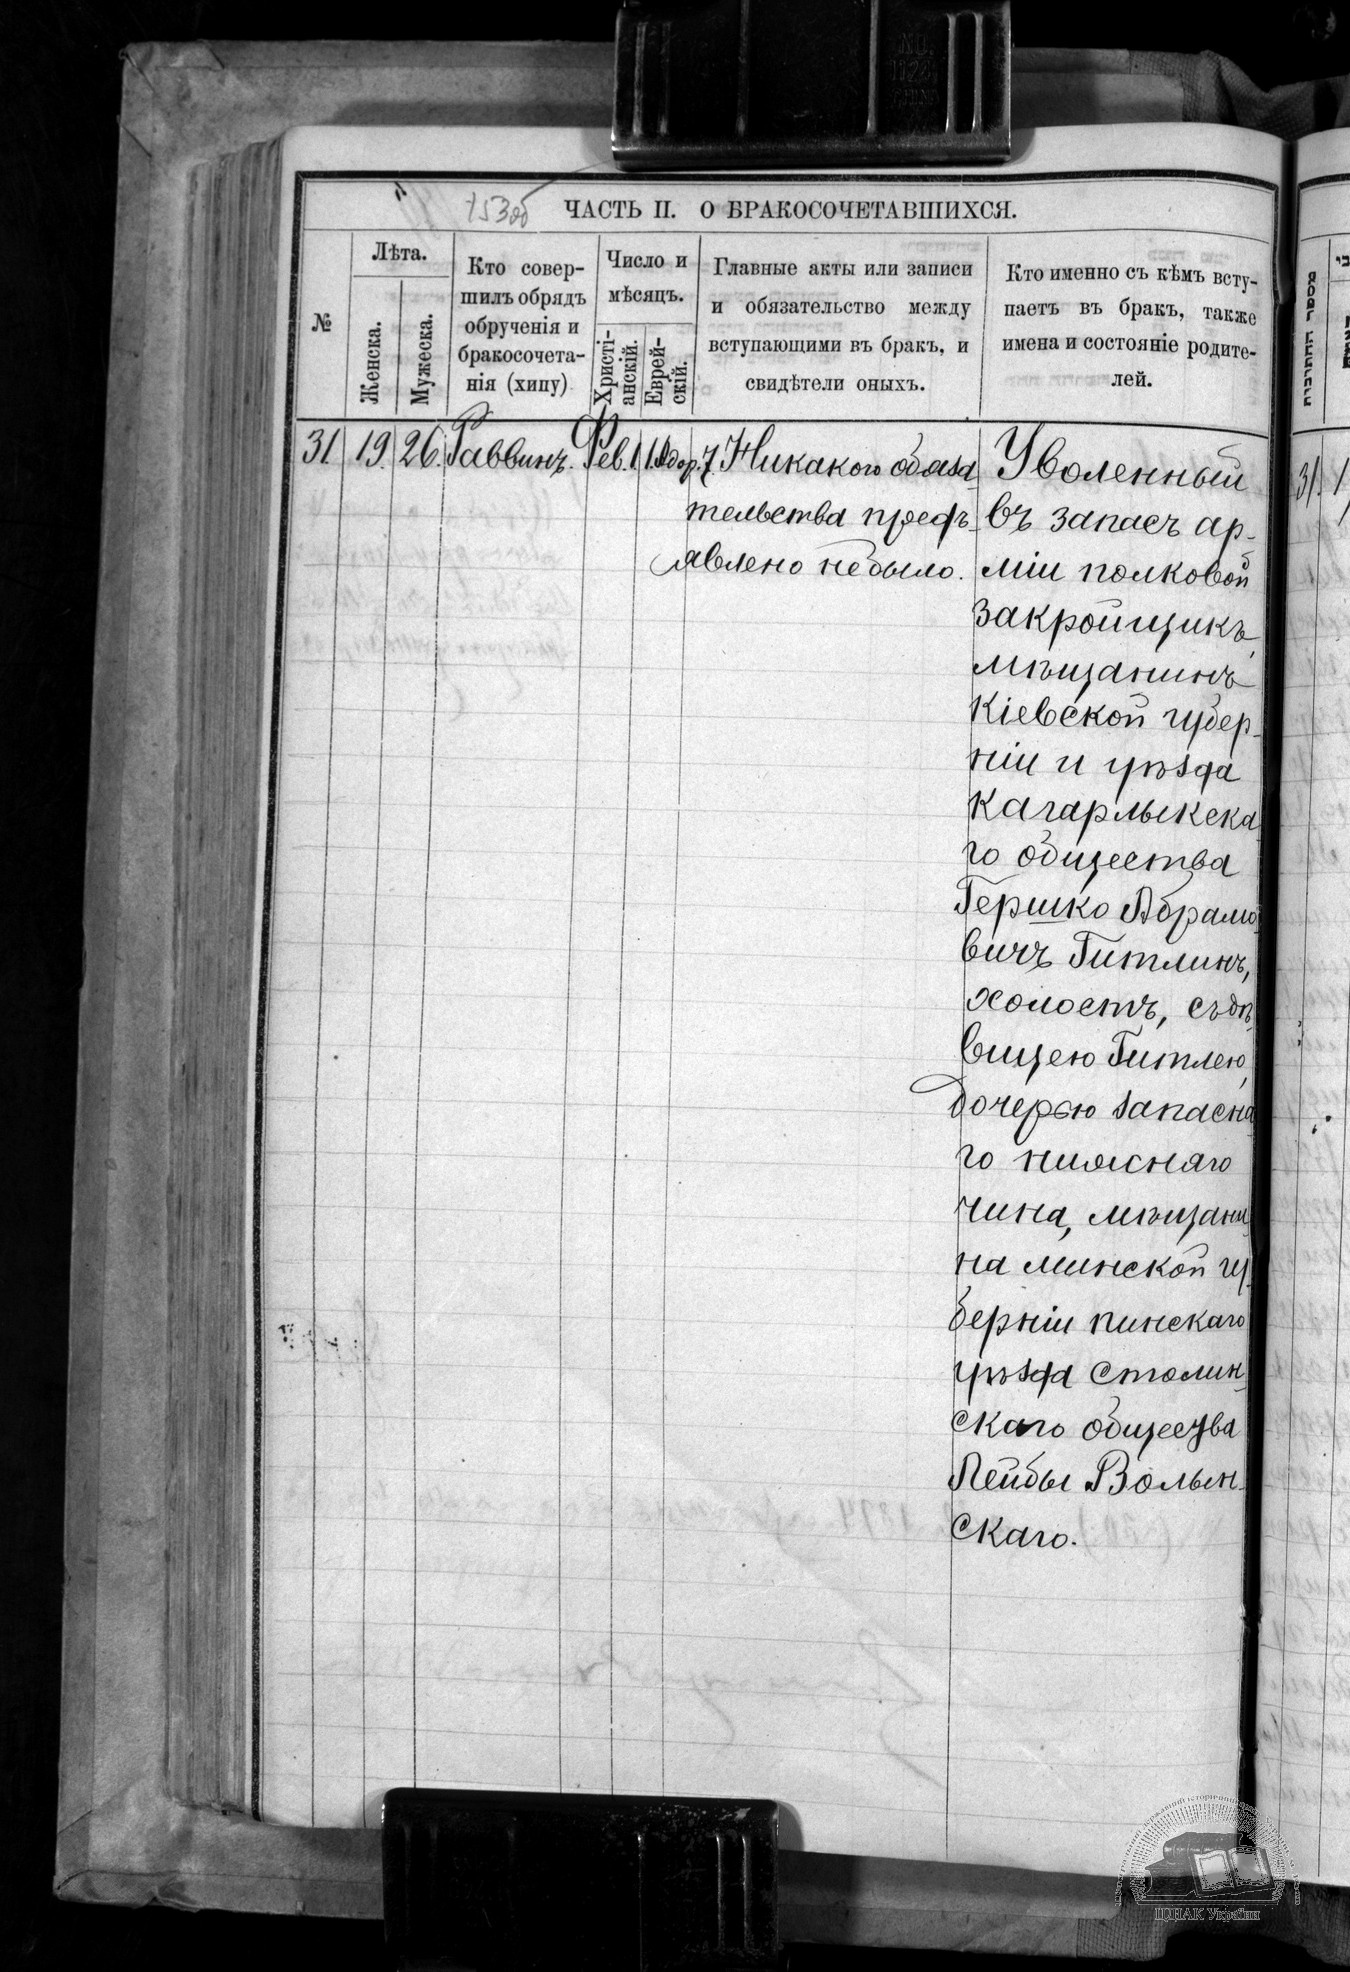 153об
ЧАСТЬ II. О БРАКОСОЧЕТАВШИХСЯ.
№
Лѣта.
Женска.
Мужеска.
Кто совер-
шилъ обрядъ
обрученія и
бракосочета-
нія (хипу)
Число и
мѣсяцъ.
Христі-
анскій.
Еврей-
скій.
Главные акты или записи
и обязательство между
вступающими въ бракъ, и
свидѣтели оныхъ.
Кто именно съ кѣмъ всту-
паетъ въ бракъ, также
имена и состояніе родите-
лей.
31 19. 26. Раввинъ. Фев. 1 Никакого обяза
тельства предъ-
явлено небыло.
Уволенный
въ запасъ ар-
міи полковой
закройщикъ,
мѣщанинъ
Кіевской губер-
ніи и уѣзда
Кагарлыкска
го общества
Гершко Абрамо
вичъ Гитлинъ,
холостъ, съдѣ
вицею Гитлею,
дочерью запасна
го нижняго
чина, мѣщани
на минской гу-
берніи пинскаго
уѣзда Столин-
скаго общества
Лейбы Волын-
скаго.
מספר הנחתנים
31.
ЦДІАК України